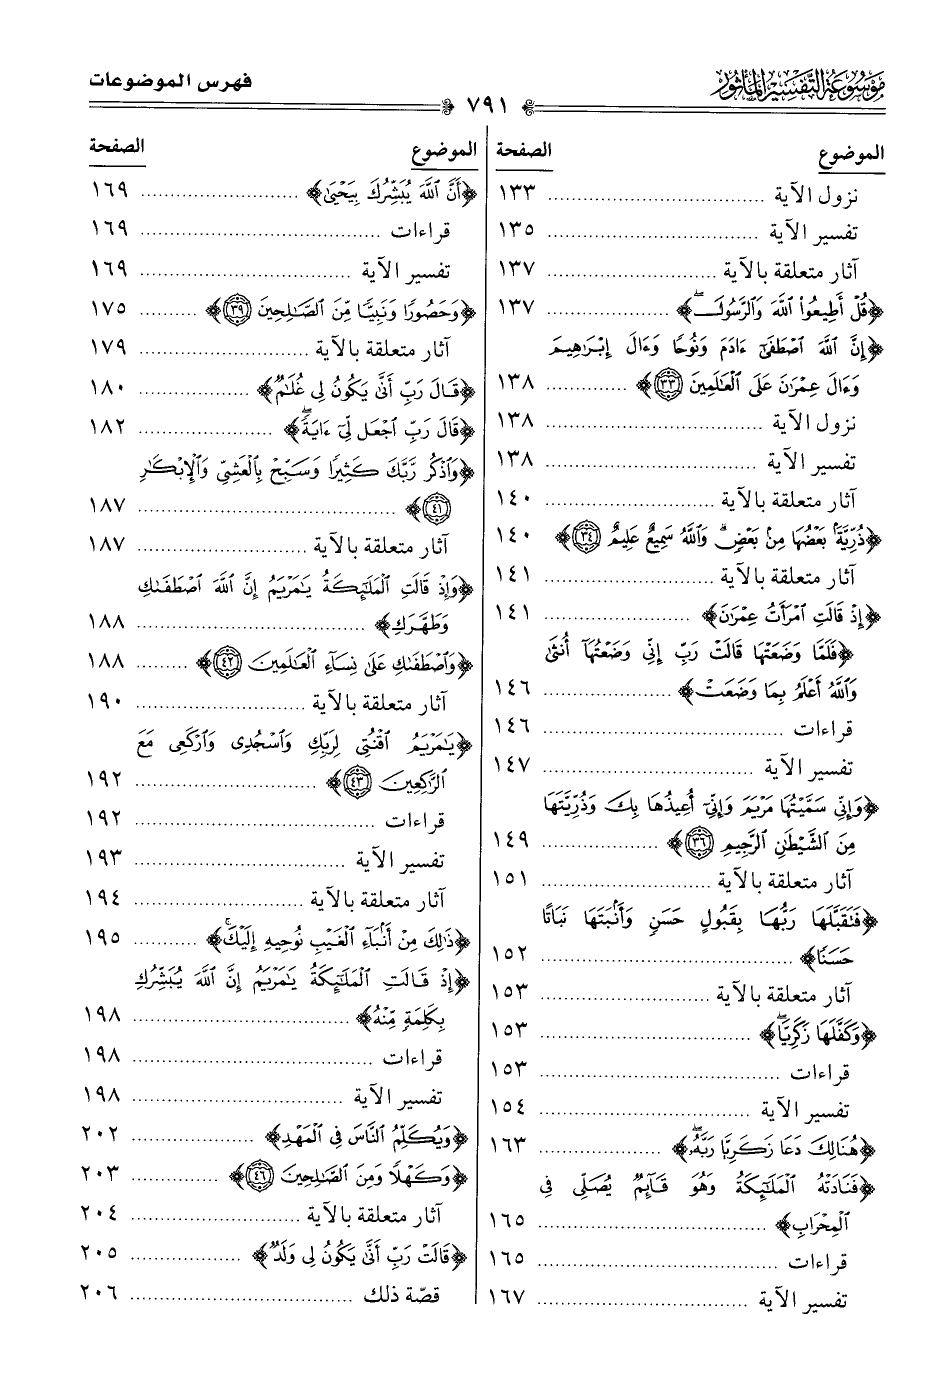 موسوعة التفسير المأثور
فهرس الموضوعات
٧٩١
الموضوع الصفحة
نزول الآية ١٣٣
تفسير الآية ١٣٥
آثار متعلقة بالآية ١٣٧
﴿قُلْ أَطِيعُوا۟ ٱللَّهَ وَٱلرَّسُولَۖ﴾ ١٣٧
﴿إِنَّ ٱللَّهَ ٱصْطَفَىٰٓ ءَادَمَ وَنُوحًا وَءَالَ إِبْرَٰهِيمَ
وَءَالَ عِمْرَٰنَ عَلَى ٱلْعَٰلَمِينَ ٣٣﴾ ١٣٨
نزول الآية ١٣٨
تفسير الآية ١٣٨
آثار متعلقة بالآية ١٤٠
﴿ذُرِّيَّةًۢ بَعْضُهَا مِنۢ بَعْضٍۗ وَٱللَّهُ سَمِيعٌ عَلِيمٌ ٣٤﴾ ١٤٠
آثار متعلقة بالآية ١٤١
﴿إِذْ قَالَتِ ٱمْرَأَتُ عِمْرَٰنَ﴾ ١٤١
﴿فَلَمَّا وَضَعَتْهَا قَالَتْ رَبِّ إِنِّى وَضَعْتُهَآ أُنثَىٰ
وَٱللَّهُ أَعْلَمُ بِمَا وَضَعَتْ﴾ ١٤٦
قراءات ١٤٦
تفسير الآية ١٤٧
﴿وَإِنِّى سَمَّيْتُهَا مَرْيَمَ وَإِنِّىٓ أُعِيذُهَا بِكَ وَذُرِّيَّتَهَا
مِنَ ٱلشَّيْطَٰنِ ٱلرَّجِيمِ ٣٦﴾ ١٤٩
آثار متعلقة بالآية ١٥١
﴿فَتَقَبَّلَهَا رَبُّهَا بِقَبُولٍ حَسَنٍ وَأَنۢبَتَهَا نَبَاتًا
حَسَنًا﴾ ١٥٢
آثار متعلقة بالآية ١٥٣
﴿وَكَفَّلَهَا زَكَرِيَّاۖ﴾ ١٥٣
قراءات ١٥٣
تفسير الآية ١٥٤
﴿هُنَالِكَ دَعَا زَكَرِيَّا رَبَّهُۥۖ﴾ ١٦٣
﴿فَنَادَتْهُ ٱلْمَلَٰٓئِكَةُ وَهُوَ قَآئِمٌ يُصَلِّى فِى
ٱلْمِحْرَابِ﴾ ١٦٥
قراءات ١٦٥
تفسير الآية ١٦٧
الموضوع الصفحة
﴿أَنَّ ٱللَّهَ يُبَشِّرُكَ بِيَحْيَىٰ﴾ ١٦٩
قراءات ١٦٩
تفسير الآية ١٦٩
﴿وَحَصُورًا وَنَبِيًّا مِّنَ ٱلصَّٰلِحِينَ ٣٩﴾ ١٧٥
آثار متعلقة بالآية ١٧٩
﴿قَالَ رَبِّ أَنَّىٰ يَكُونُ لِى غُلَٰمٌ﴾ ١٨٠
﴿قَالَ رَبِّ ٱجْعَل لِّىٓ ءَايَةًۖ﴾ ١٨٢
﴿وَٱذْكُر رَّبَّكَ كَثِيرًا وَسَبِّحْ بِٱلْعَشِىِّ وَٱلْإِبْكَٰرِ
٤١﴾ ١٨٧
آثار متعلقة بالآية ١٨٧
﴿وَإِذْ قَالَتِ ٱلْمَلَٰٓئِكَةُ يَٰمَرْيَمُ إِنَّ ٱللَّهَ ٱصْطَفَىٰكِ
وَطَهَّرَكِ﴾ ١٨٨
﴿وَٱصْطَفَىٰكِ عَلَىٰ نِسَآءِ ٱلْعَٰلَمِينَ ٤٢﴾ ١٨٨
آثار متعلقة بالآية ١٩٠
﴿يَٰمَرْيَمُ ٱقْنُتِى لِرَبِّكِ وَٱسْجُدِى وَٱرْكَعِى مَعَ
ٱلرَّٰكِعِينَ ٤٣﴾ ١٩٢
قراءات ١٩٢
تفسير الآية ١٩٣
آثار متعلقة بالآية ١٩٤
﴿ذَٰلِكَ مِنْ أَنۢبَآءِ ٱلْغَيْبِ نُوحِيهِ إِلَيْكَۚ﴾ ١٩٥
﴿إِذْ قَالَتِ ٱلْمَلَٰٓئِكَةُ يَٰمَرْيَمُ إِنَّ ٱللَّهَ يُبَشِّرُكِ
بِكَلِمَةٍ مِّنْهُ﴾ ١٩٨
قراءات ١٩٨
تفسير الآية ١٩٨
﴿وَيُكَلِّمُ ٱلنَّاسَ فِى ٱلْمَهْدِ﴾ ٢٠٢
﴿وَكَهْلًا وَمِنَ ٱلصَّٰلِحِينَ ٤٦﴾ ٢٠٣
آثار متعلقة بالآية ٢٠٤
﴿قَالَتْ رَبِّ أَنَّىٰ يَكُونُ لِى وَلَدٌ﴾ ٢٠٥
قصّة ذلك ٢٠٦